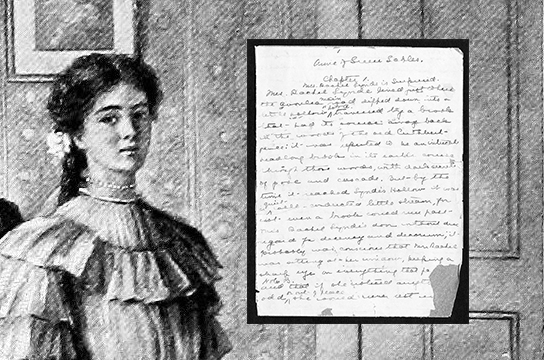 Anne of Green Gables.
Chapter 1.
Mrs. Rachel Lynde is Surprised.
Mrs. Rachel Lynde lived just where
main
the Avonlea road dipped down into a
little hollow, traversed by a brook
that had its source away back
in the woods of the old Cuthbert
place; it was reputed to be an intricate
headlong brook in its earlier course
through those woods, with dark secrets
of pool and cascade; but by the
time it reached Lynde's Hollow it was
a quiet well-conducted little stream, for
not even a brook could run past
Mrs. Rachel Lynde's door
regard for decency and decorum; it
probably was conscious that Mrs. Rachel
was sitting at her window, keeping a
sharp eye on everything that pa
and that if she noticed
odd, she would never rest un